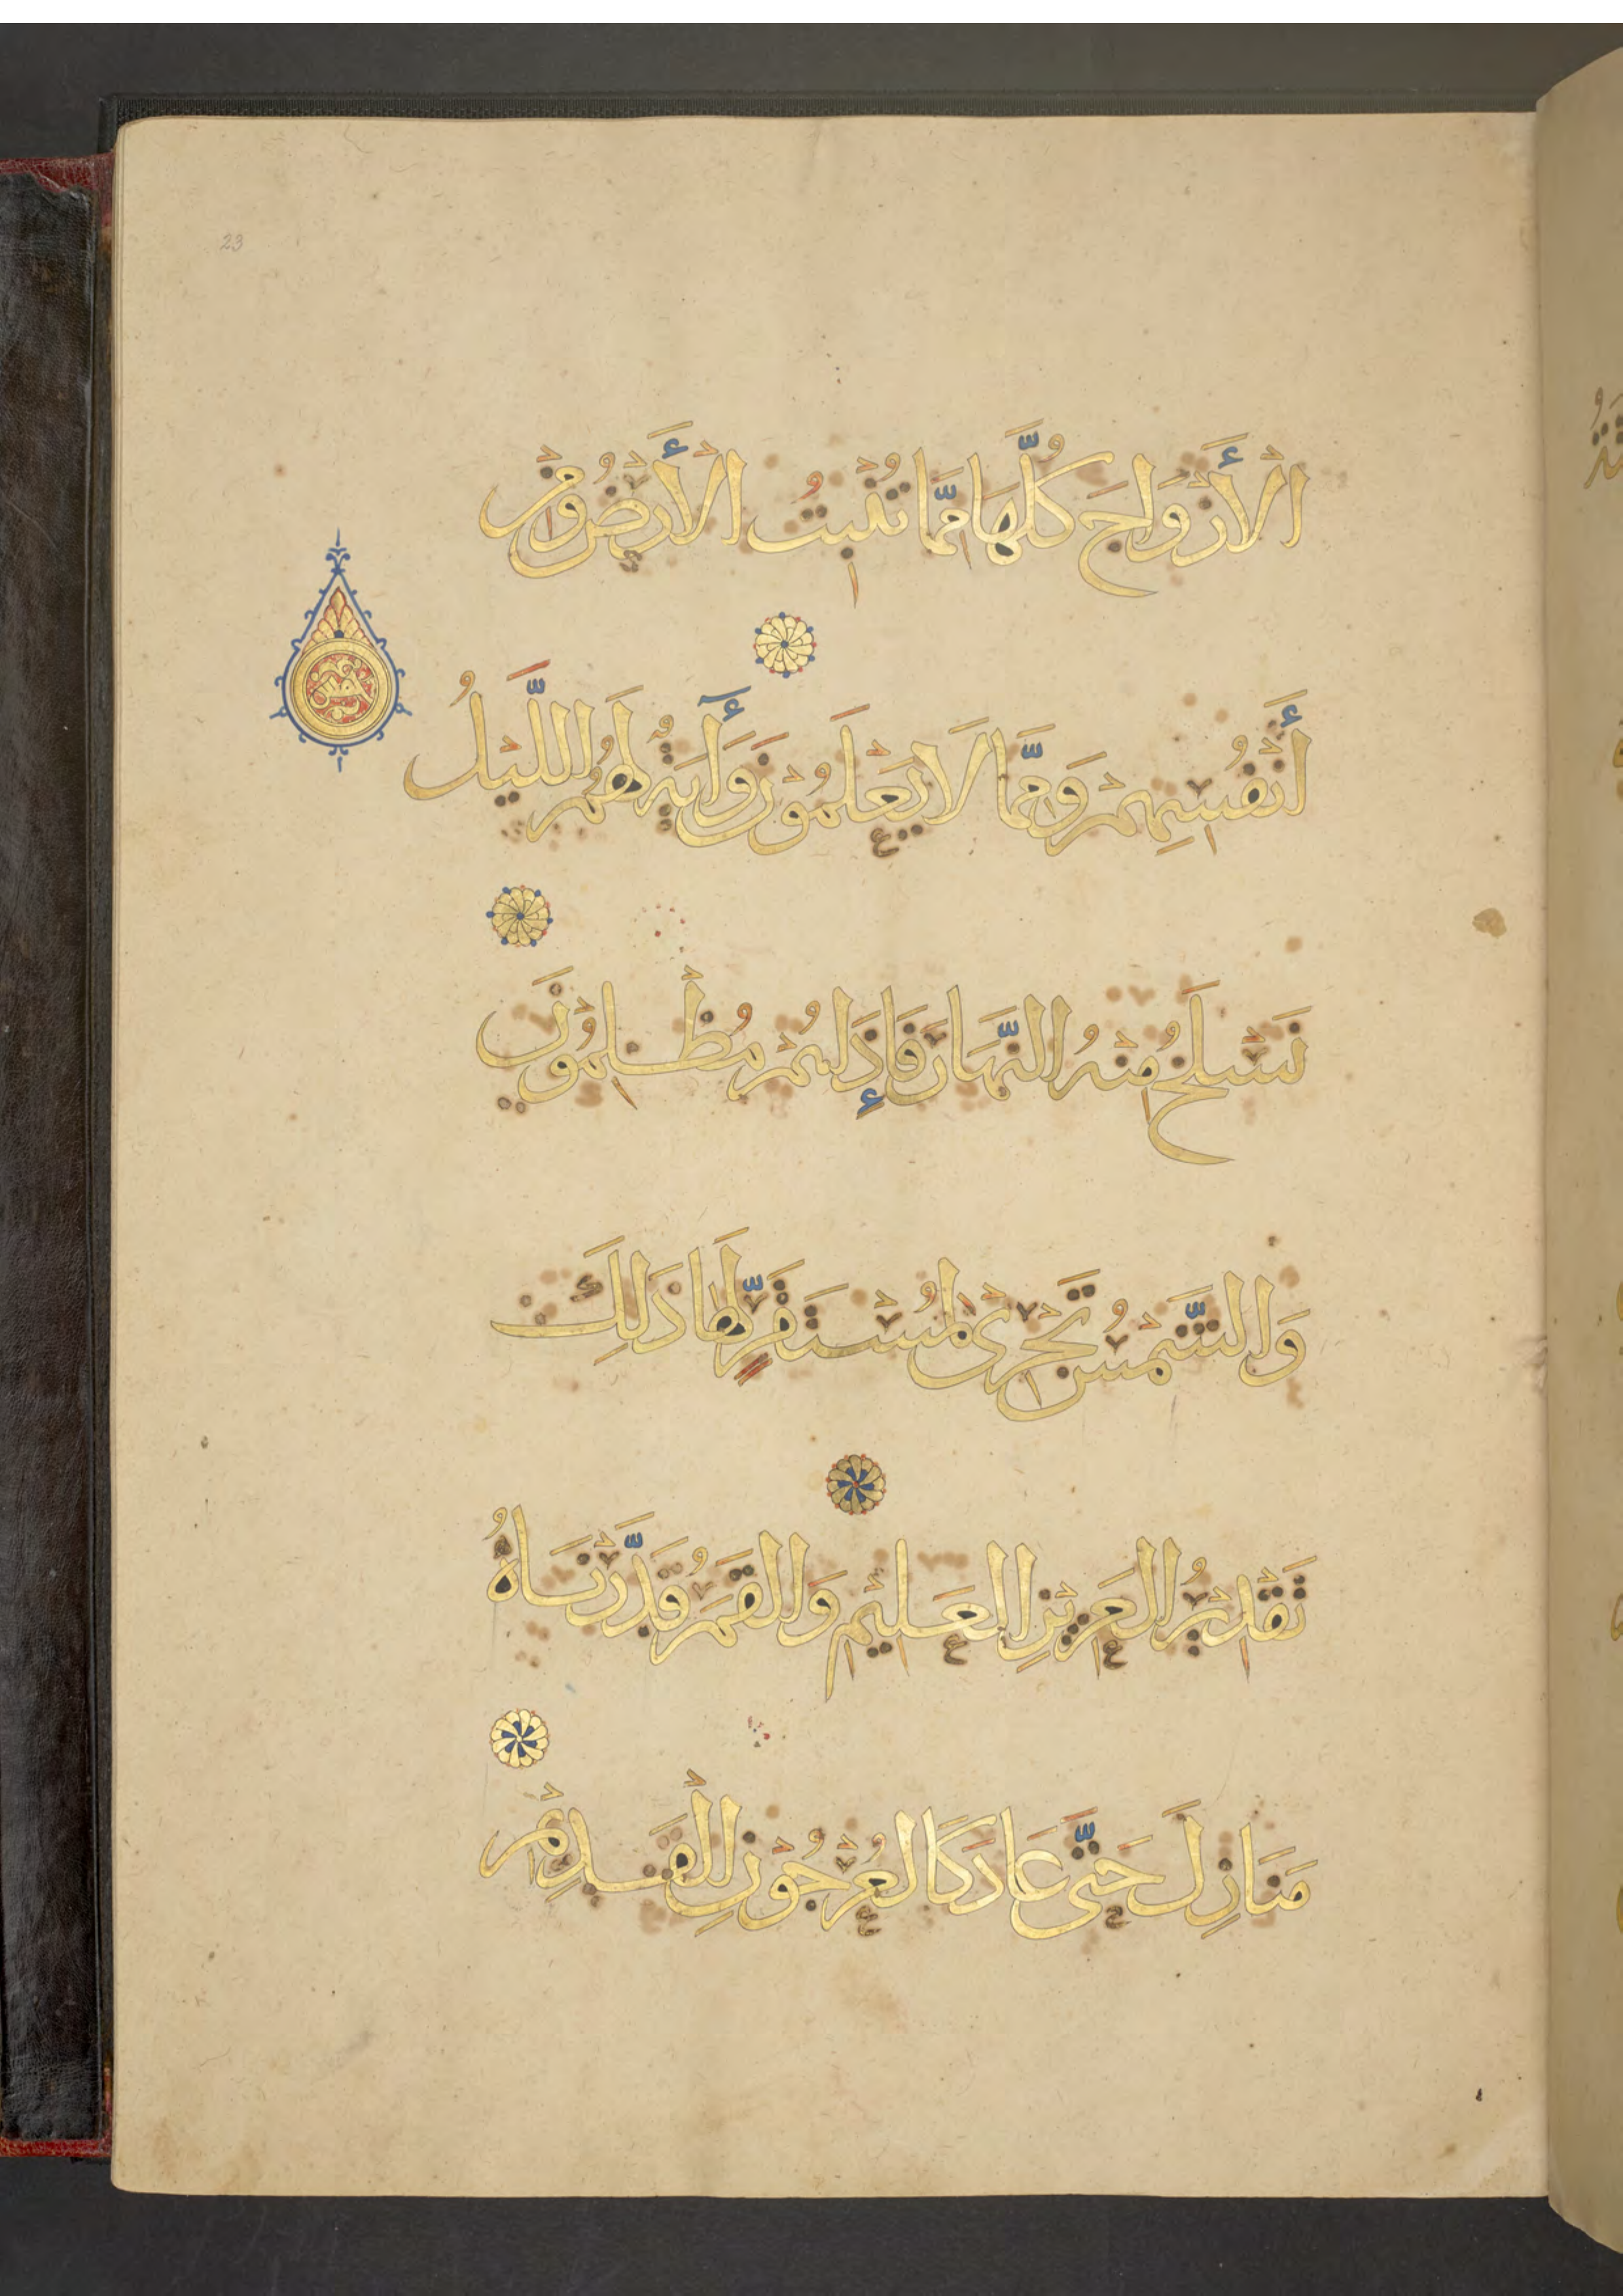 23
الْأَزْوَاجَ كُلَّهَا مِمَّا تُنْبِتُ الْأَرْضُ وَمِنْ
أَنْفُسِهِمْ وَمِمَّا لَا يَعْلَمُوْنَ وَأٰيَةٌ لَهُمُ اللَّيْلُ
نَسْلَخُ مِنْهُ النَّهَارَ فَإِذَا هُمْ مُظْلِمُوْنَ
وَالشَّمْسُ تَجْرِىْ لِمُسْتَقَرٍّ لَهَا ذَلِكَ
تَقْدِيْرُ الْعَزِيْزِ الْعَلِيْمِ وَالْقَمَرُ قَدَّرْنَاهُ
مَنَازِلَ حَتَّى عَادَ كَالْعُرْجُوْنِ الْقَدِيْمِ